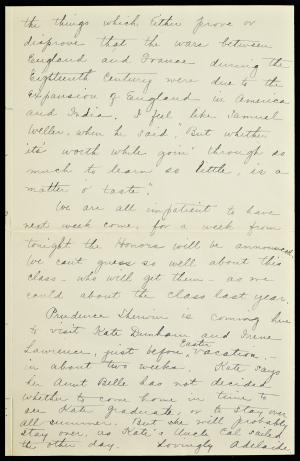 the things which either prove or
disprove that the wars between
England and France during the
Eighteenth Century were due to the
expansion of England in America
and India. I feel like Samuel
Weller, when he said, "But whether
its' worth while goin' through so
much to learn so little, is a
matter o' taste".
We are all impatient to have
next week come, for a week from
tonight the Honors will be announced.
We can't guess so well about this
class - who will get them - as we
could about the class last year.
Prudence Sherwin is coming here
to visit Kate Dunham and Irene
Lawrence, just before Easter vacation, -
in about two weeks. Kate says
her Aunt Belle has not decided
whether to come home in time to
see Kate graduate, or to stay over
all summer. But she will probably
stay over, as Kate's Uncle Cal sailed
the other day. Lovingly Adelaide